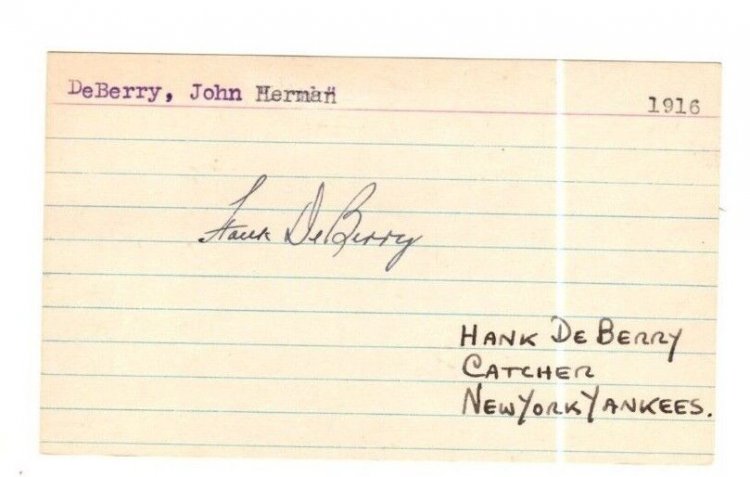 DeBerry, John Herman
1916
Hank DeBerry
HANK DE BERRY
CATCHER
NEW YORK YANKEES.